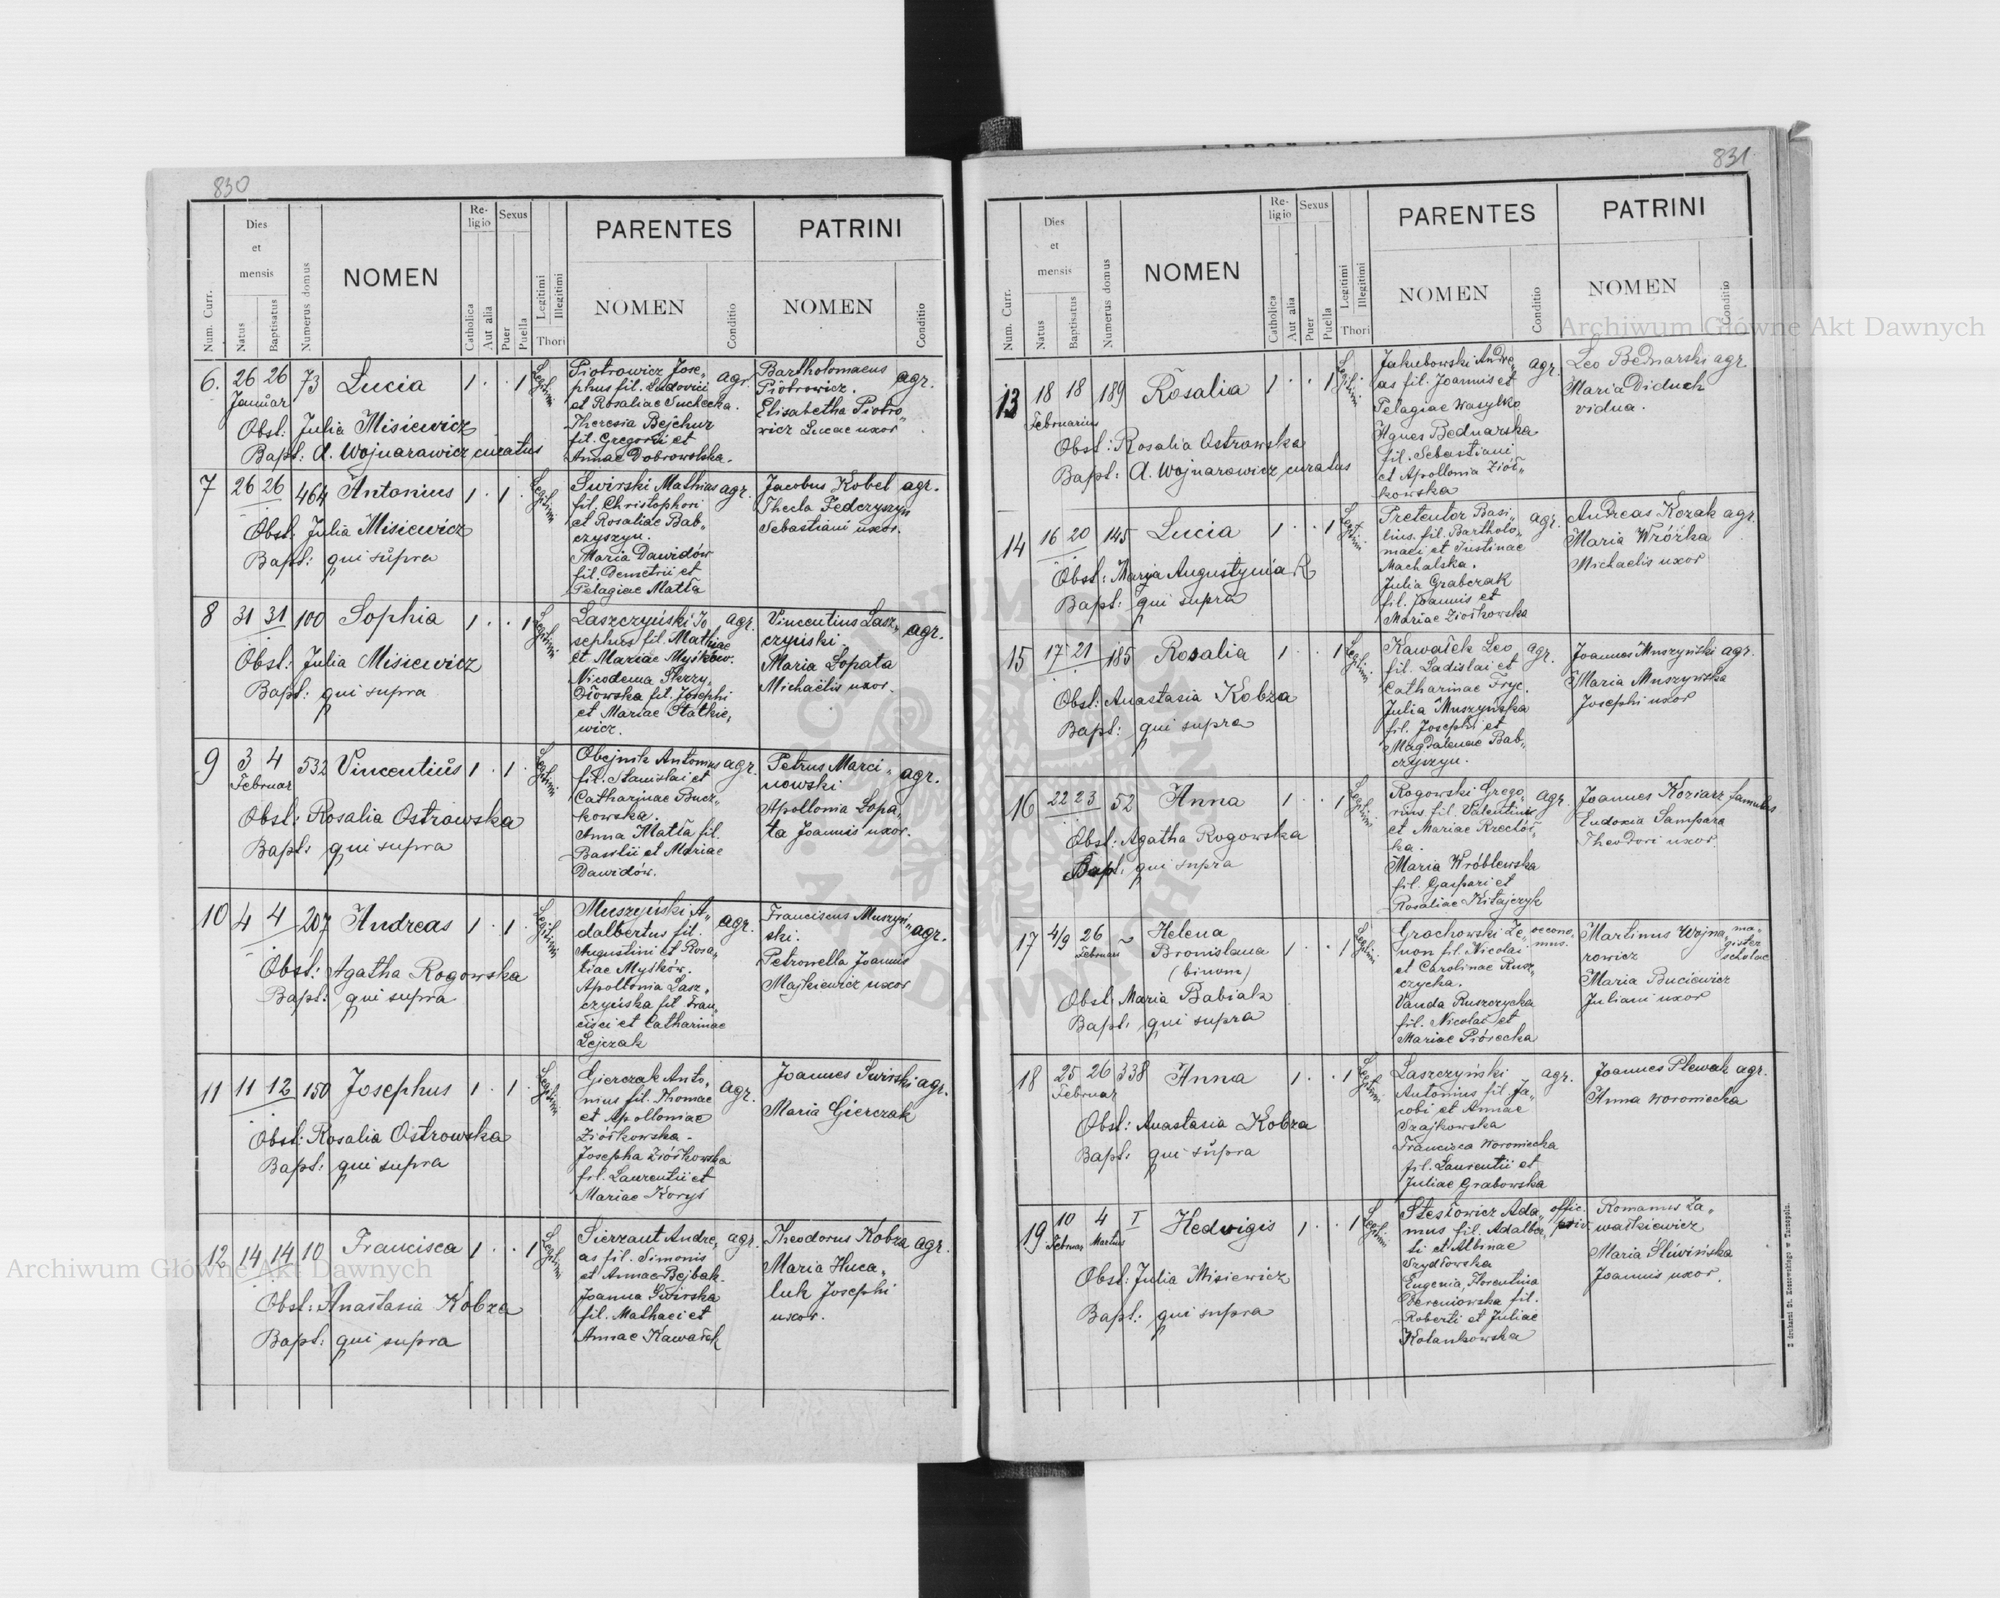 830
Num. Curr.
Dies et mensis
Natus
Baptisatus
Numerus domus
NOMEN
Religio
Catholica
Aut alia
Sexus
Puer
Puella
Legitimi
Illegitimi
Thori
PARENTES
NOMEN
Conditio
PATRINI
NOMEN
Conditio
6. 26 26 73 Lucia 1 · · 1 Legitimi
Januar
Obst: Julia Misiewicz
Bapt: A. Wojnarawicz curatus
Piotrowicz Jose- agr.
phus fil. Ludovici
et Rosaliae Suchecka.
Theresia Bejchur
fil. Gregorii et
Annae Dobrowolska.
Bartholomaeus agr.
Piotrowicz.
Elisabetha Piotro
wicz Lucae uxor
7 26 26 464 Antonius 1 · 1 · Legitimi
Obst. Julia Misiewicz
Bapt: qui supra
Świrski Mathias agr.
fil. Christophori
et Rosaliae Bab-
czyszyn.
Maria Dawidów
fil. Demetrii et
Pelagiae Matła
Jacobus Kobel agr.
Thecla Fedczyszyn
Sebastiani uxor.
8 31 31 100 Sophia 1 · · 1 Legitimi
Obst: Julia Misiewicz
Bapt: qui supra
Laszczyński Jo agr.
sephus fil. Mathiae
et Mariae Myśków.
Nicodema Skrzy,
dłowska fil. Josephi
et Mariae Statkie,
wicz.
Vincentius Lasz- agr.
czyński.
Maria Łopata
Michaëlis uxor.
9 3 4 532 Vincentius 1 · 1 · Legitimi
Februar
Obst: Rosalia Ostrowska
Bapt: qui supra
Obejnik Antonius agr.
fil. Stanislai et
Catharinae Bucz-
kowska.
Anna Matła fil.
Basilii et Mariae
Dawidów.
Petrus Marci- agr.
nowski
Apollonia Łopa-
ta Joannis uxor.
10 4 4 207 Andreas 1 · 1 · Legitimi
Obst: Agatha Rogowska
Bapt: qui supra
Muszyński A- agr.
dalbertus fil.
Augustini et Rosa-
liae Myśków.
Apollonia Lasz-
czyńska fil. Fran-
cisci et Catharinae
Lejczak
Franciscus Muszyń- agr.
ski.
Petronella Joannis
Majkiewicz uxor
11 11 12 150 Josephus 1 · 1 · Legitimi
Obst: Rosalia Ostrowska
Bapt: qui supra
Gierczak Anto- agr.
nius fil. Thomae
et Apolloniae
Ziółkowska.
Josepha Ziółkowska
fil. Laurentii et
Mariae Koryś
Joannes Świrski agr.
Maria Gierczak
12 14 14 10 Francisca 1 · · 1 Legitimi
Obst: Anastasia Kobza
Bapt: qui supra
Sierżant Andre, agr.
as fil. Simonis
et Annae Bejbak.
Joanna Świrska
fil. Mathaei et
Annae Kawałek
Theodorus Kobza agr.
Maria Huca-
luk Josephi
uxor.
831
Num. Curr.
Dies et mensis
Natus
Baptisatus
Numerus domus
NOMEN
Religio
Catholica
Aut alia
Sexus
Puer
Puella
Legitimi
Illegitimi
Thori
PARENTES
NOMEN
Conditio
PATRINI
NOMEN
Conditio
13 18 18 189 Rosalia 1 · · 1 Legitimi
Februarius
Obst: Rosalia Ostrowska
Bapt: A. Wojnarowicz curatus
Jakubowski Andre- agr.
as fil. Joannis et
Pelagiae Wasylko
Agnes Bednarska
fil. Sebastiani
et Apollonia Ziół-
kowska
Leo Bednarski agr.
Maria Diduch
vidua.
14 16 20 145 Lucia 1 · · 1 Legitimi
Obst: Marya Augustynia R
Bapt: qui supra
Pretentor Basi- agr.
lius. fil. Bartholo-
maei et Justinae
Machalska.
Julia Grabczak
fil. Joannis et
Mariae Ziółkowska
Andreas Kozak agr.
Maria Wróżka
Michaelis uxor
15 17 21 185 Rosalia 1 · · 1 Legitimi
Obst: Anastasia Kobza
Bapt: qui supra
Kawałek Leo agr.
fil. Ladislai et
Catharinae Fryc.
Julia Muszyńska
fil. Josephi et
Magdalenae Bab-
czyszyn.
Joannes Muszyński agr.
Maria Muszyńska
Josephi uxor
16 22 23 52 Anna 1 · · 1 Legitimi
Obst: Agatha Rogowska
Bapt: qui supra
Rogowski Grego- agr.
rius fil. Valentinis
et Mariae Rzeciół-
ka.
Maria Wróblewska
fil. Gaspari et
Rosaliae Kitajczyk
Joannes Koziarz famulus
Eudoxia Sampara
Theodori uxor
17 4/9 26 Helena 1 · · 1 Legitimi
Februarii Bronislaua
(binom)
Obst Maria Babiak
Bapt: qui supra
Grochowski Ze- oecono-
non fil. Nicolai mus.
et Carolinae Rusz-
czycka.
Vanda Ruszczycka
fil. Nicolai et
Mariae Piórecka
Martinus Wojna- ma-
rowicz gister scholae
Maria Buciewicz
Juliani uxor
18 25 26 338 Anna 1 · · 1 Legitimi
Februar
Obst: Anastasia Kobza
Bapt: qui supra
Laszczyński agr.
Antonius fil. Ja-
cobi et Annae
Szajkowska
Francisca Woroniecka
fil. Laurentii et
Juliae Grabowska
Joannes Plewak agr.
Anna Woroniecka
19 10 4 I Hedvigis 1 · · 1 Legitimi
Februar Martius
Obst: Julia Misiewicz
Bapt: qui supra
Stesłowicz Ada- offic.
mus fil. Adalber- priv.
ti et Albinae
Szydłowska
Eugenia, Florentina
Dereniowska fil.
Roberti et Juliae
Kolankowska
Romanus Za-
waśkiewicz
Maria Śliwińska
Joannis uxor.
Z drukarni St. Kossowskiego w Tarnopolu.
Archiwum Główne Akt Dawnych
Archiwum Główne Akt Dawnych